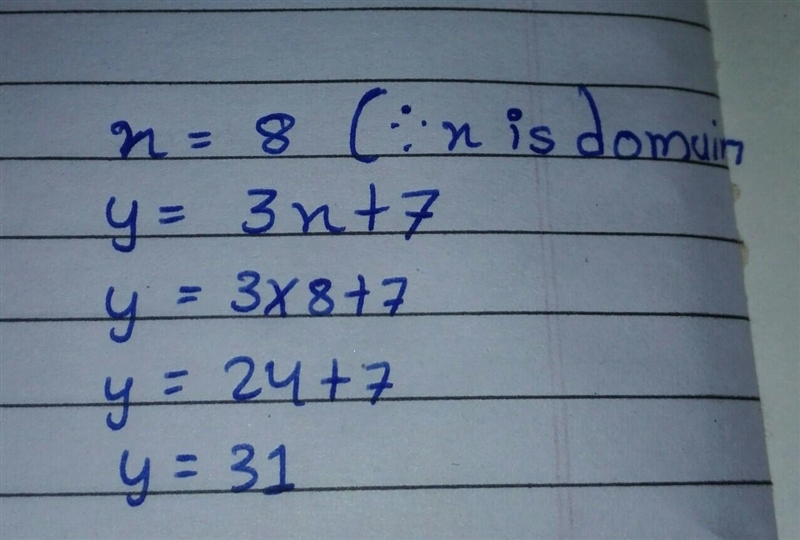 x = 8 (∵ x is domain
y = 3x+7
y = 3×8+7
y = 24+7
y = 31